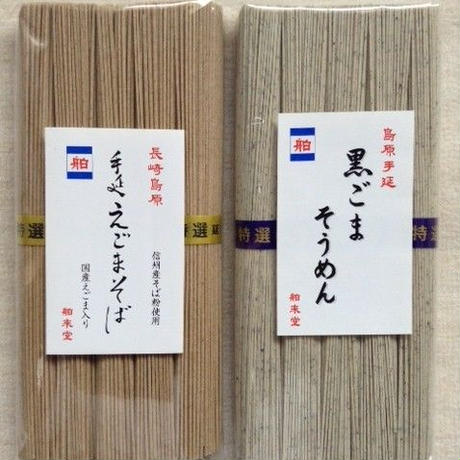 舶
長崎島原
手延えごまそば
信州産そば粉使用
国産えごま入り
舶来堂
特選
特選
舶
島原手延
黒ごま
そうめん
舶来堂
特選
特選